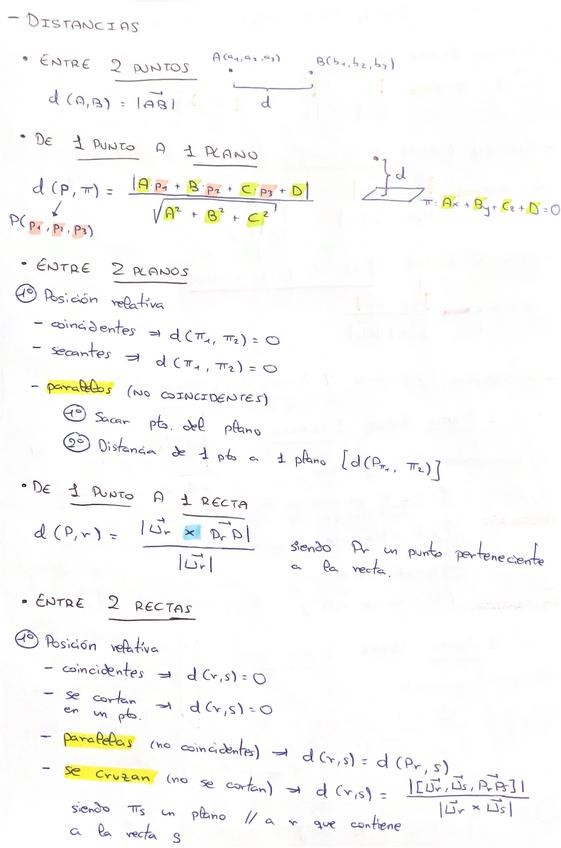 - DISTANCIAS
• ENTRE 2 PUNTOS A(a₁,a₂,a₃) B(b₁,b₂,b₃)
d(A,B) = |AB⃗| d
• DE 1 PUNTO A 1 PLANO
d(P,π) = |A·p₁ + B·p₂ + C·p₃ + D| / √(A² + B² + C²) d π: Ax + By + Cz + D = 0
P(p₁, p₂, p₃)
• ENTRE 2 PLANOS
1º Posición relativa
- coincidentes ⇒ d(π₁, π₂) = 0
- secantes ⇒ d(π₁, π₂) = 0
- paralelos (NO COINCIDENTES)
1º Sacar pto. del plano
2º Distancia de 1 pto a 1 plano [d(Pπ₁, π₂)]
• DE 1 PUNTO A 1 RECTA
d(P,r) = |u⃗r × PrP⃗| / |u⃗r| siendo Pr un punto perteneciente
a la recta.
• ENTRE 2 RECTAS
1º Posición relativa
- coincidentes ⇒ d(r,s) = 0
- se cortan
en un pto. ⇒ d(r,s) = 0
- paralelas (no coincidentes) ⇒ d(r,s) = d(Pr, s)
- se cruzan (no se cortan) ⇒ d(r,s) = |[u⃗r, u⃗s, PrPs⃗]| / |u⃗r × u⃗s|
siendo πs un plano // a r que contiene
a la recta s